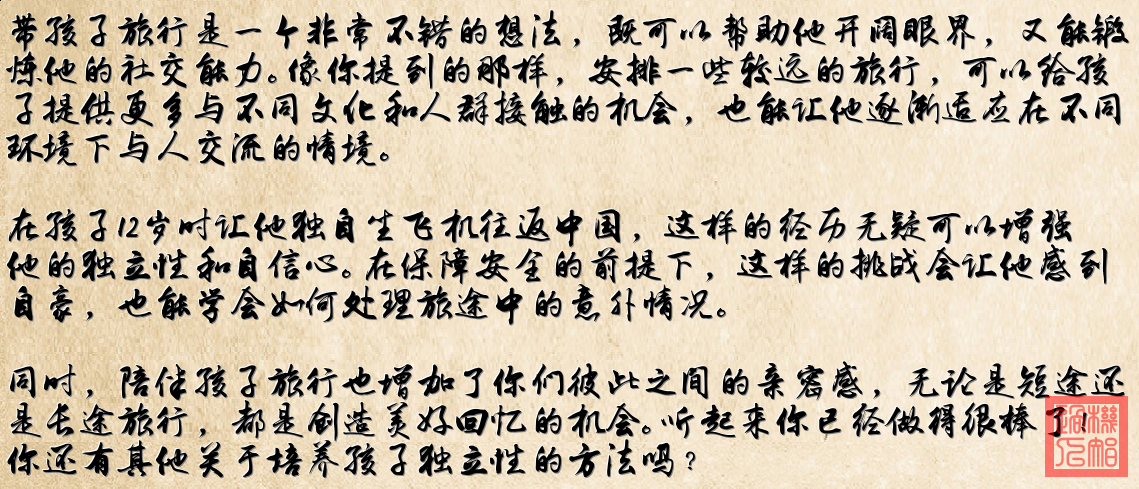 带孩子旅行是一个非常不错的想法，既可以帮助他开阔眼界，又能锻
炼他的社交能力。像你提到的那样，安排一些较远的旅行，可以给孩
子提供更多与不同文化和人群接触的机会，也能让他逐渐适应在不同
环境下与人交流的情境。
在孩子12岁时让他独自坐飞机往返中国，这样的经历无疑可以增强
他的独立性和自信心。在保障安全的前提下，这样的挑战会让他感到
自豪，也能学会如何处理旅途中的意外情况。
同时，陪伴孩子旅行也增加了你们彼此之间的亲密感，无论是短途还
是长途旅行，都是创造美好回忆的机会。听起来你已经做得很棒了！
你还有其他关于培养孩子独立性的方法吗？